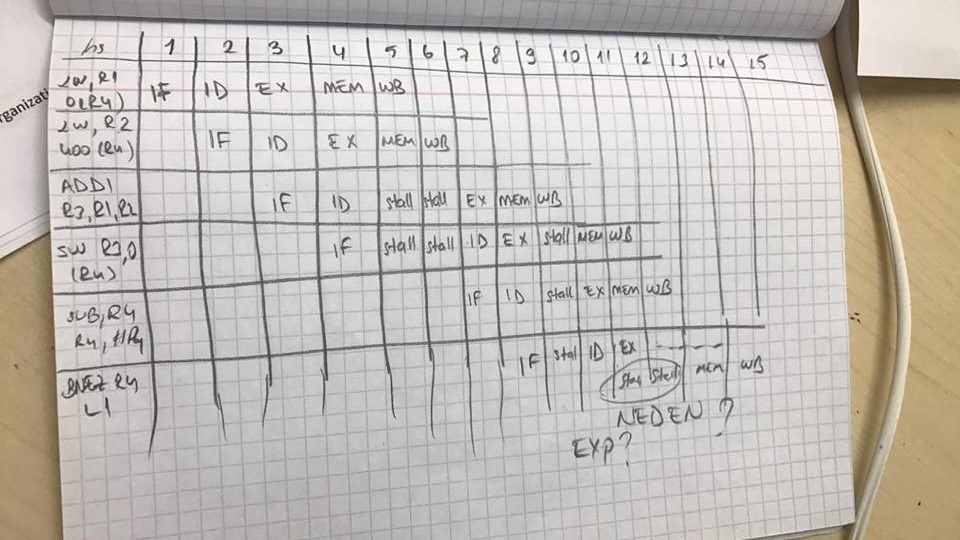 rganizati
Ins 1 2 3 4 5 6 7 8 9 10 11 12 13 14 15
LW, R1
0(R4) IF ID EX MEM WB
LW, R2
400 (R4) IF ID EX MEM WB
ADDI
R3, R1, R2 IF ID stall stall EX MEM WB
SW R3, 0
(R4) IF stall stall ID EX stall MEM WB
SUB, R4
R4, #R4 IF ID stall EX MEM WB
BNEZ R4
L1 IF stal ID EX - - - - -
Stall Stall MEM WB
NEDEN ?
EXP?